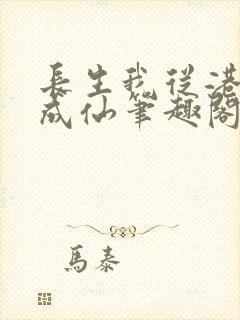 長生我從港
成仙筆趣閣
馬泰